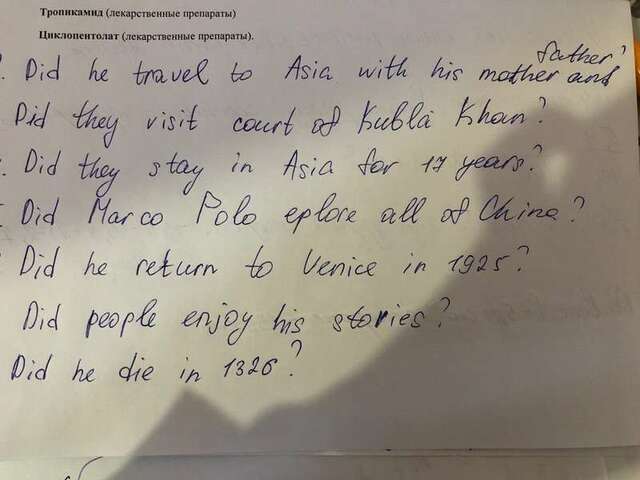 Тропикамид (лекарственные препараты)
Циклопентолат (лекарственные препараты).
Did he travel to Asia with his mother and father?
Did they visit court of Kubla Khan?
Did they stay in Asia for 17 years?
Did Marco Polo eplore all of China?
Did he return to Venice in 1925?
Did people enjoy his stories?
Did he die in 1326?